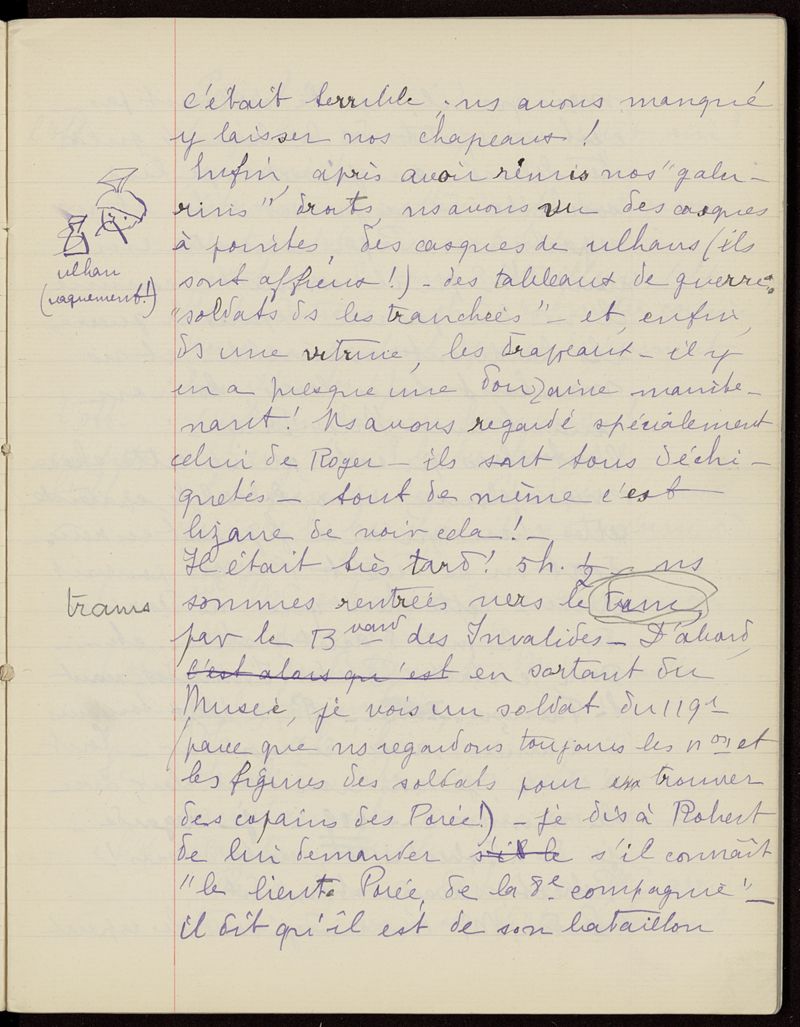 c'était terrible ; ns avons manqué
y laisser nos chapeaux !
Enfin, après avoir remis nos "galu-
rins" droits, ns avons vu des casques
à pointes, des casques de ulhans (ils
sont affreux !) - des tableaux de guerre :
"soldats ds les tranchées" - et, enfin,
ds une vitrine, les drapeaux - il y
en a presque une douzaine mainte-
nant ! Ns avons regardé spécialement
celui de Roger - ils sont tous déchi-
quetés - tout de même c'est
bizarre de voir cela ! -
Il était très tard ! 5h. ½ - ns
sommes rentrées vers le tram
par le Bvard des Invalides - D'abord,
c'est alors qu'est en sortant du
Musée, je vois un soldat du 119e
(parce que ns regardons toujours les nos et
les figures des soldats pour trouver
des copains des Porée !) - je dis à Robert
de lui demander s'il le s'il connaît
"le lieut. Porée, de la 8e compagnie" -
il dit qu'il est de son bataillon
ulhan
(vaguement !)
trams